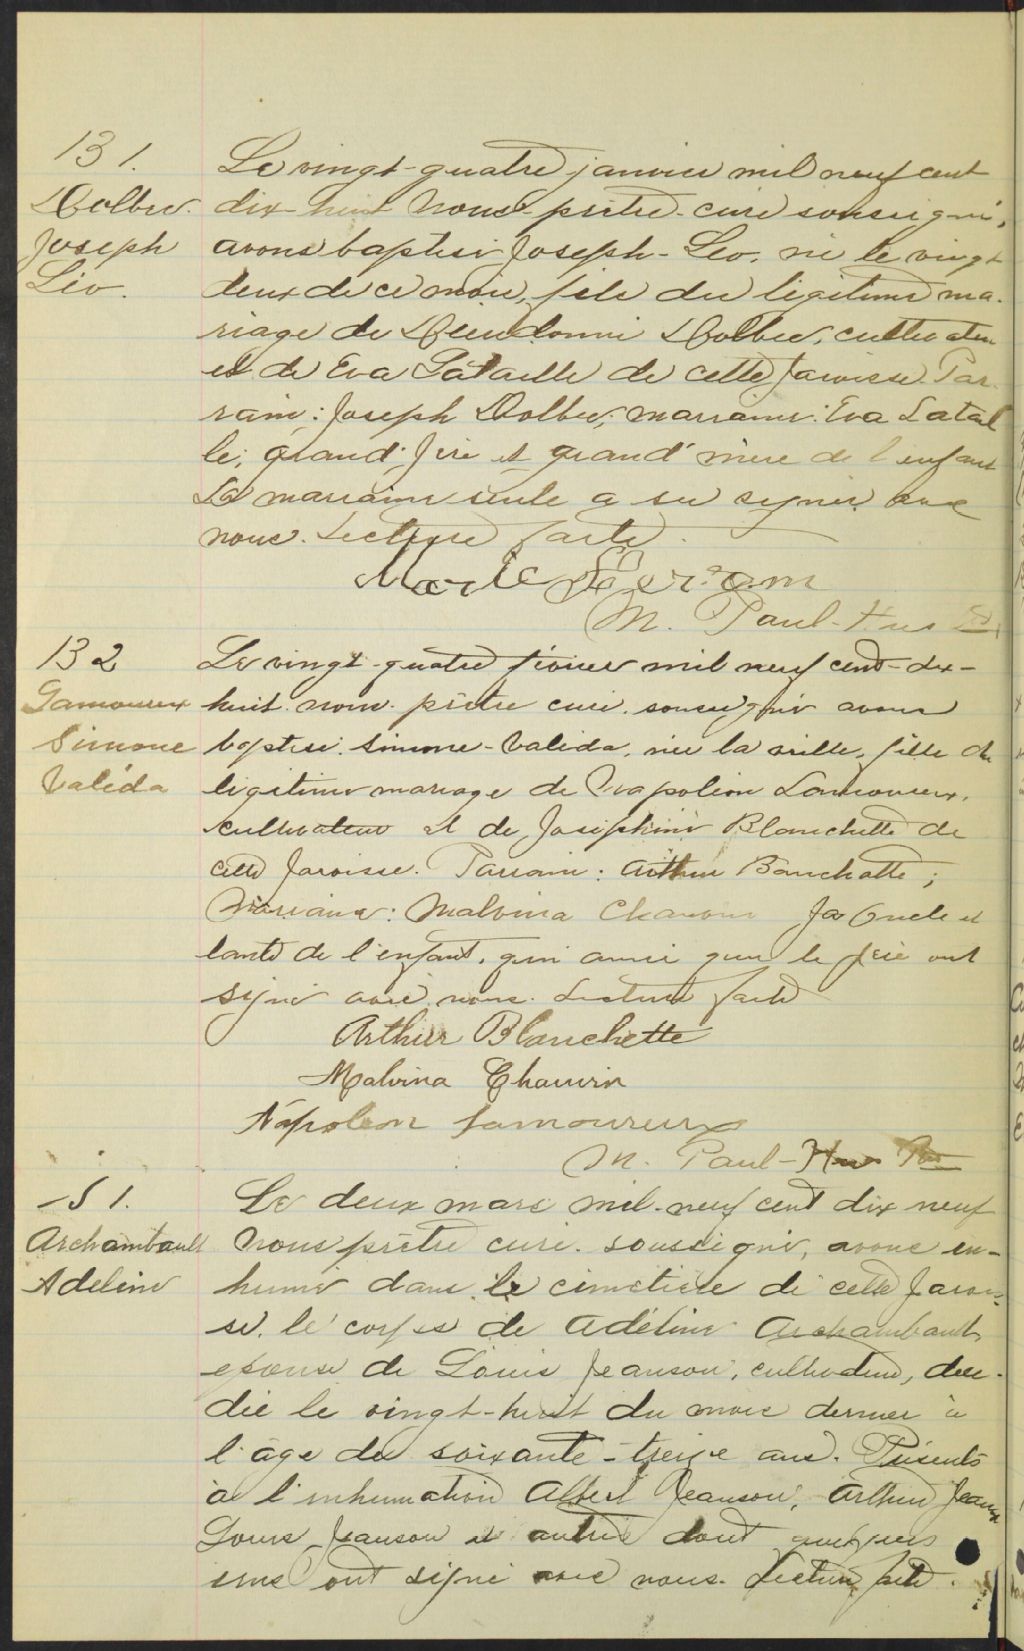 B 1.
Dolbec.
Joseph
Léo.
Le vingt-quatre janvier mil neuf cent
dix-huit Nous prêtre-curé soussigné,
avons baptisé Joseph-Léo, né le vingt
deux de ce mois, fils du légitime ma-
riage de Dieudonné Dolbec, cultivateur
et de Eva Lataille de cette paroisse. Par-
rain: Joseph Dolbec, marraine: Eva Latail
le, grand'père et grand'mère de l'enfant
La marraine seule a su signer avec
nous. Lecture faite.
M. Paul-Hus
B 2
Lamoureux
Simone
Valéda
Le vingt-quatre février mil neuf cent-dix-
huit nous prêtre curé soussigné avons
baptisé Simone-Valéda, née la veille, fille du
légitime mariage de Napoléon Lamoureux,
cultivateur et de Joséphine Blanchette de
cette paroisse. Parrain: Arthur Blanchette;
Marraine: Malvina Chauvin oncle et
tante de l'enfant, qui ainsi que le père ont
signé avec nous. Lecture faite
Arthur Blanchette
Malvina Chauvin
Napoleon Lamoureux
M. Paul-Hus Ptre
S 1.
Archambault
Adeline
Le deux mars mil-neuf cent dix neuf
Nous prêtre curé soussigné, avons in-
humé dans le cimetière de cette parois-
se, le corps de Adéline Archambault,
épouse de Louis Jeanson, cultivateur, décé-
dée le vingt-huit du mois dernier à
l'âge de soixante-treize ans. Présents
à l'inhumation Albert Jeanson, Arthur Jeanson
Louis Jeanson et autres dont quelques
uns ont signé avec nous. Lecture faite.